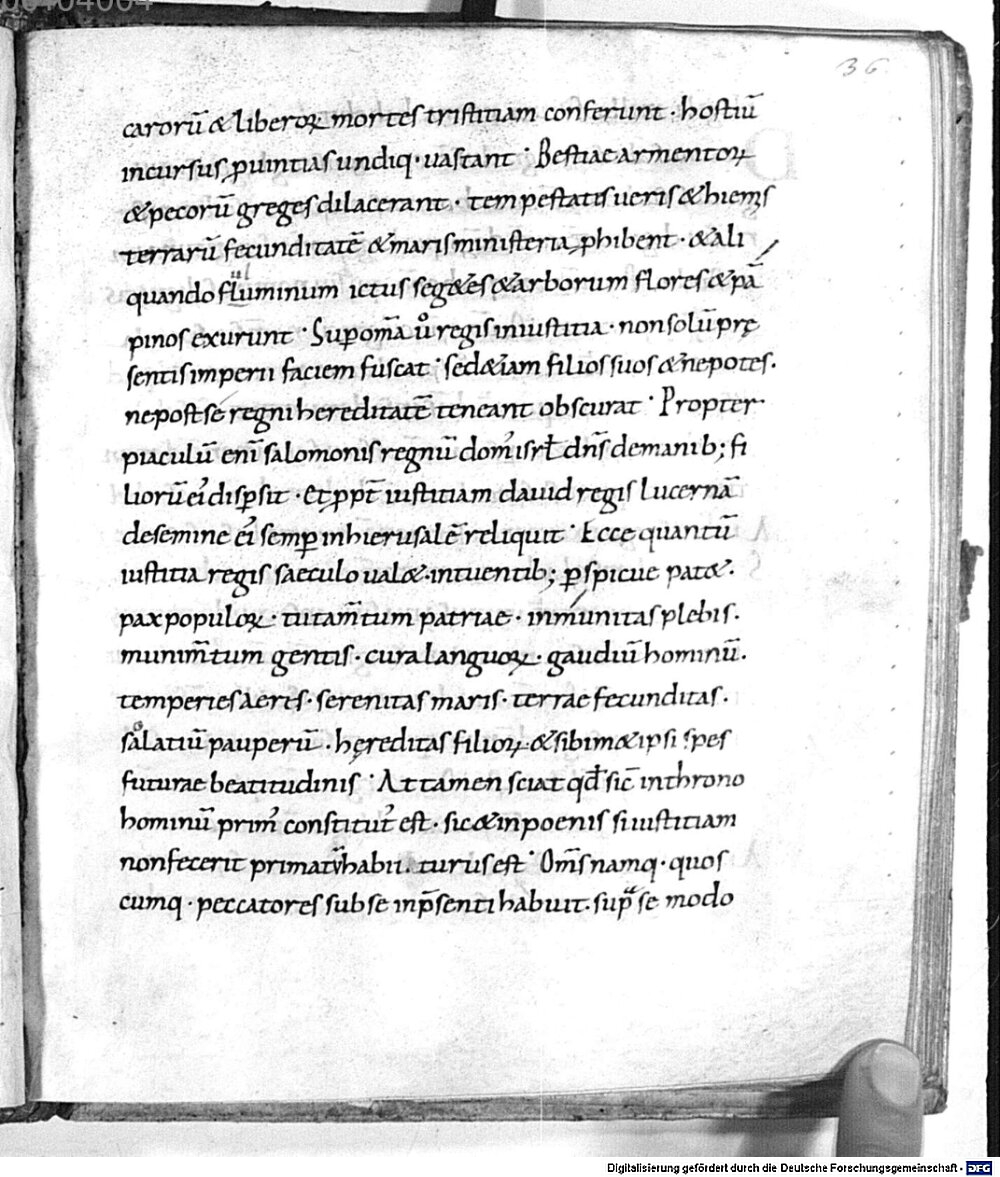 36
carorū & liberoꝝ mortes tristitiam conferunt · hostiū
incursus ꝓuintias undiq · uastant · Bestiae armentoꝝ
& pecorū greges dilacerant · tempestatis ueris & hiemis
terrarū fecunditatē & maris ministeria ꝓhibent · & ali
quando fluminum ictus seg&es & arborum flores & pā
pinos exurunt · Suꝑ om̄a ů regis iniustitia · non solū prę
sentis imperii faciem fuscat · sed &iam filios suos & nepotes ·
ne post se regni hereditatē teneant obscurat · Propter
piaculū enī salomonis regnū domꝰ isrł dn̄s de manib; fi
liorū eiꝰ disꝑsit · Et ꝓpt̄ iustitiam dauid regis lucernā
de semine eiꝰ semꝑ in hierusalē reliquit · Ecce quantū
iustitia regis saeculo ual& · intuentib; ꝑspicue pat& ·
pax populoꝝ · tutam̄tum patriae · inmunitas plebis ·
munim̄tum gentis · cura languoꝝ · gaudiū hominū ·
temperies aeris · serenitas maris · terrae fecunditas ·
sålatiū pauperū · hęreditas filioꝝ & sibim& ipsi spes
futurae beatitudinis · Attamen sciat qđ sic̄ in throno
hominū primꝰ constitutꝰ est · sic & in poenis si iustitiam
non fecerit primatū habii · turus est · Om̄s namq · quos
cumq · peccatores sub se in p̄senti habuit · supͣ se modo
Digitalisierung gefördert durch die Deutsche Forschungsgemeinschaft · DFG